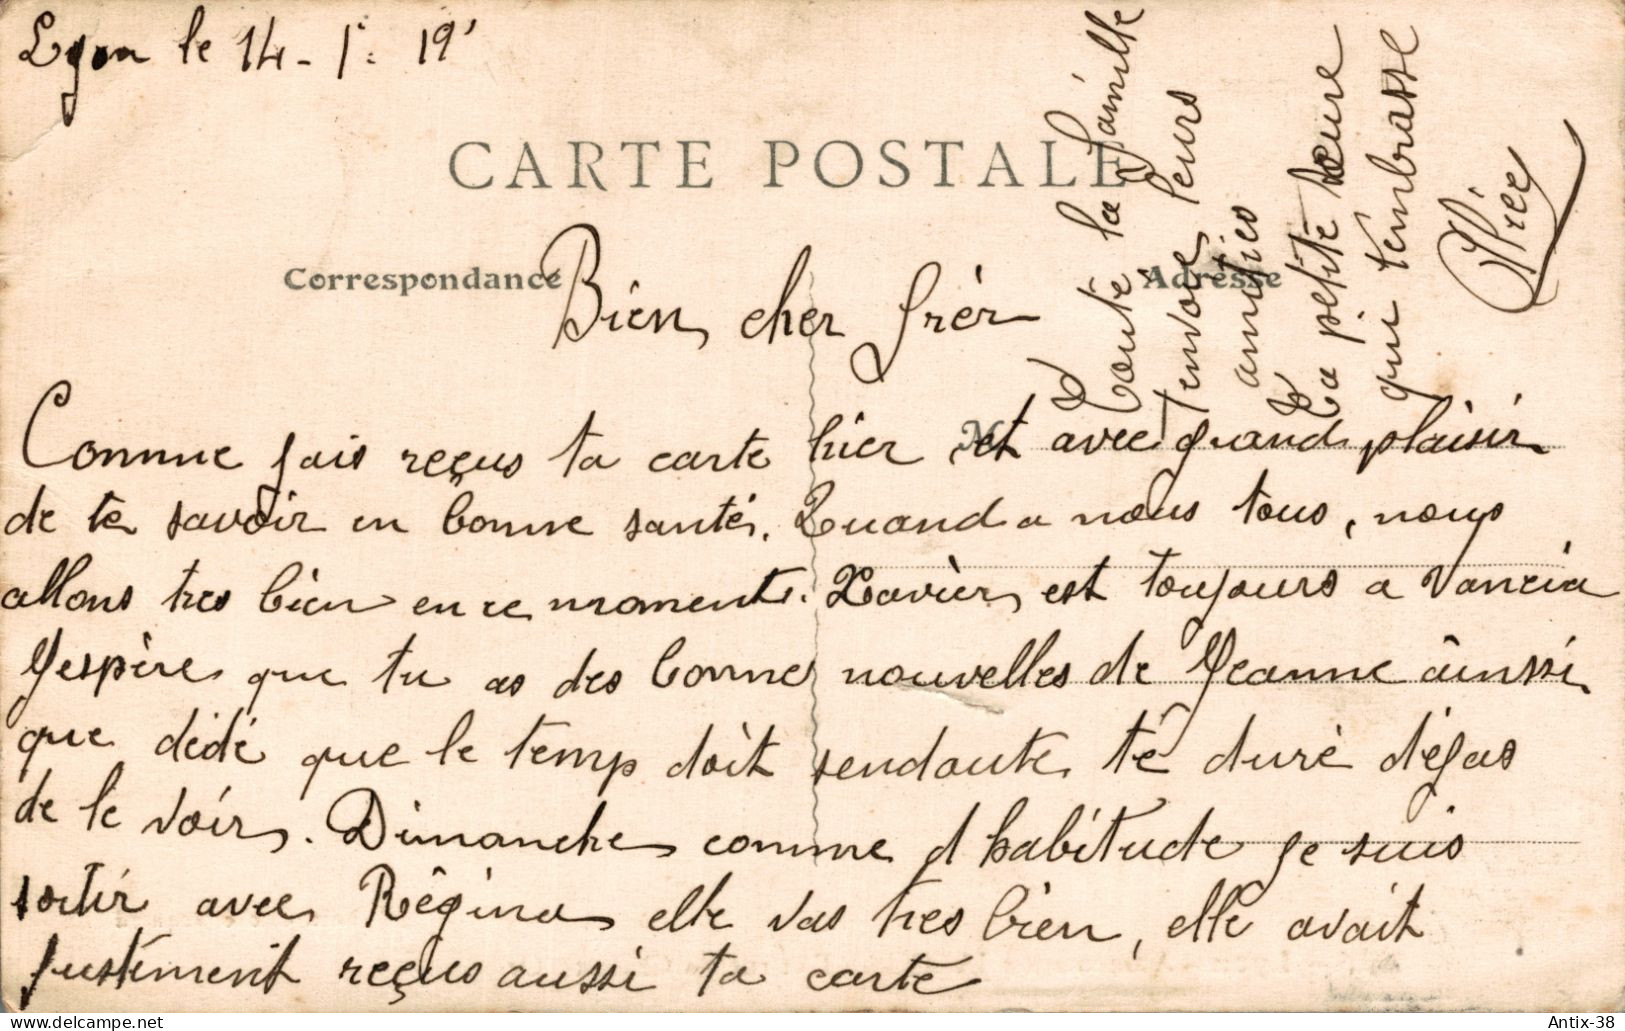 Lyon le 14 - 1e: 19'
CARTE POSTALE
Correspondance
Adresse
Bien cher frèr
M
Comme jais reçus ta carte hier et avec grand plaisir
de te savoir en bonne santé. Quand a nous tous, nous
allons tres bien en ce moment. Xavier est toujours a Vancia
Jespère que tu as des bonne nouvelles de Jeanne ainssi
que dédé que le temp doit sendoute té duré déjas
de le voir. Dimanche comme d habitude je suis
sortir avec Régina elle vas tres bien, elle avait
justement reçus aussi ta carte
Toute la famille
tenvoie leurs
amities
Ta petite seure
qui tembrasse
Antix-38